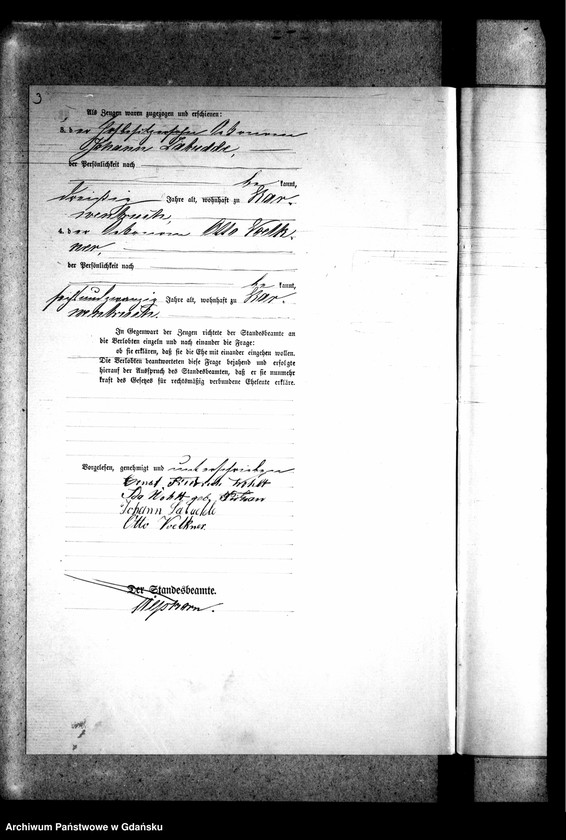 3
Als Zeugen waren zugezogen und erschienen:
3. der Hofbesitzersohn Oekonom
Johann Labudde,
der Persönlichkeit nach
be kannt,
dreißig Jahre alt, wohnhaft zu Kar-
wenbruch,
4. der Oekonom Otto Voelk-
ner,
der Persönlichkeit nach
be kannt,
sechsundzwanzig Jahre alt, wohnhaft zu Kar-
wenbruch.
In Gegenwart der Zeugen richtete der Standesbeamte an
die Verlobten einzeln und nach einander die Frage:
ob sie erklären, daß sie die Ehe mit einander eingehen wollen.
Die Verlobten beantworteten diese Frage bejahend und erfolgte
hierauf der Ausspruch des Standesbeamten, daß er sie nunmehr
kraft des Gesetzes für rechtsmäßig verbundene Eheleute erkläre.
Vorgelesen, genehmigt und unterschrieben
Ernst Friedrich
Ida geb.
Johann Labudde
Otto Voelkner.
Der Standesbeamte.
Archiwum Państwowe w Gdańsku